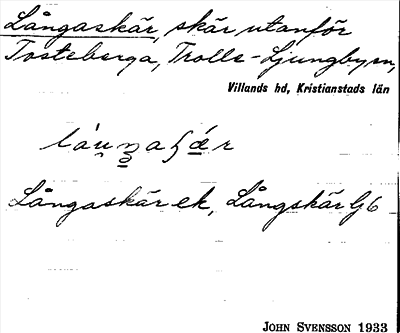 Långaskär, skär utanför
Tosteberga, Trolle-Ljungby sn,
Villands hd, Kristianstads län
Långaskär ek, Långskär Gj 6
JOHN SVENSSON 1933